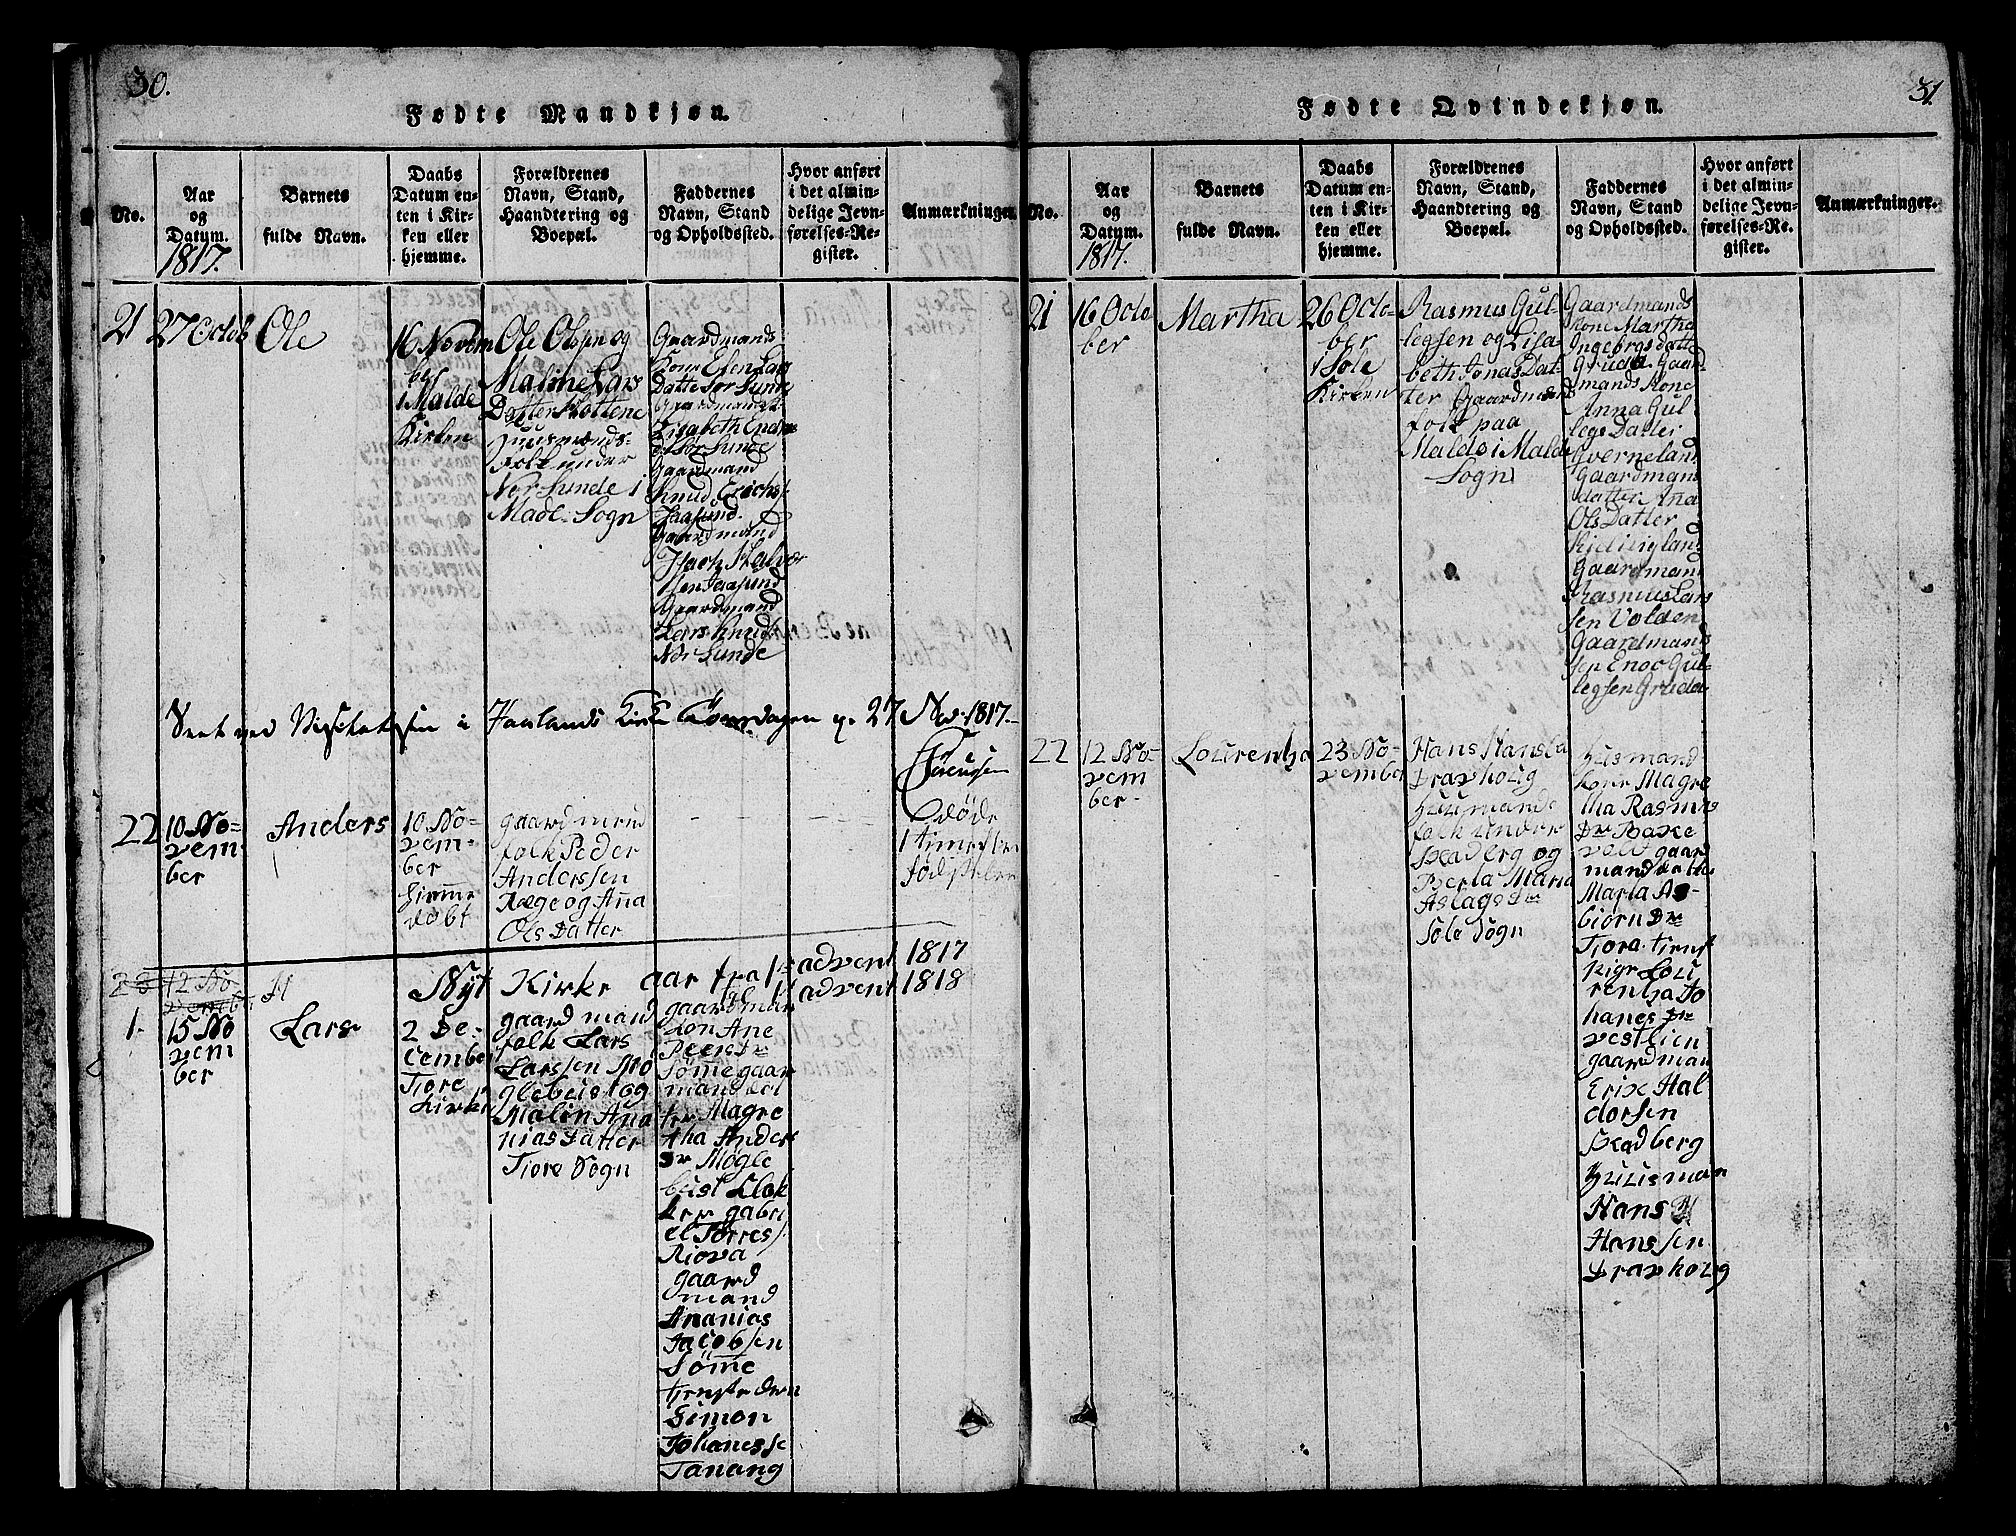 30.
Fødte Mandkjøn.
No.
Aar
og
Datum.
1817.
Barnets
fulde Navn.
Daabs
Datum en-
ten i Kir-
ken eller
hjemme.
Forældrenes
Navn, Stand,
Haandtering og
Boepæl.
Faddernes
Navn, Stand
og Opholdssted.
Hvor anført
i det almin-
delige Jevn-
førelses-Re-
gister.
Anmærkninger.
21
27 Octob
Ole
16 Novem
ber
i Malde
Kirken
Ole Olsen og
Maline Lars
Datter
Huusmands-
Folk under
Nør Sunde i
Made-Sogn
Gaardmands
Kone Elen Lars
Datte Sør Sunde
Gaardmands
Lisabeth Endre
d Sør Sunde
Gaardmand
Knud Erichs
Jaasund
Gaardmand
Halvor
sen Jaasund
Gaardmand
Lars Knuds
Nør Sunde
Seet ved Visitatsen i Haalands Kirke d. 27 Nov. 1817.
Sørensen
22
10 No-
vem-
ber
Anders
10 No-
vem-
ber
himme
døbt
gaardmend
folk Peder
Anderssen
Ræge og Ana
Ols Datter
døde
1 time efter
fødselen
Nyt Kirke aar fra 1te advent 1817
til 1te advent 1818
23
12 No-
vember
N
1.
15 No
vem
ber
Lars
2 De-
cember
Tiore
Kirke
gaard mand
folk Lars
Larssen Mø
glebust og
Malin Ana
nias Datter
Tiore Sogn
gaardman
kon Ane
Peers Dr
Sømme gaar
mans dat
ter Magre
tha Anders
Dr Møgle
bust Klok
ker gabri
el Torress
Risva
gaard
mand
Ananias
Jacobsen
Sømme
tienste dren
Simon
Johanesse
Tanang
31
Fødte Qvindekjøn.
No.
Aar
og
Datum.
1817.
Barnets
fulde Navn.
Daabs
Datum en-
ten i Kir-
ken eller
hjemme.
Forældrenes
Navn, Stand,
Haandtering og
Boepæl.
Faddernes
Navn, Stand
og Opholdssted.
Hvor anført
i det almin-
delige Jevn-
førelses-Re-
gister.
Anmærkninger.
21
16 Octo
ber
Martha
26 Octo-
ber
i Sole
Kirken
Rasmus Gul-
legsen og Lisa-
beth Jonas Dat-
ter Gaardmands
folk paa
Malde i Malde
Sogn
Gaardmands
Kone Martha
Ingebrgs datte
Gruda Gaar
mands Kone
Anna Gul
legs Datter
Qverneland
Gaardmans
datter Ana
Ols Datter
land
Gaardmand
Rasmus Lars
sen Volden
Gaardmands
sen Enoc Gul-
legsen Gruda
22
12 No-
vem
ber-
Lourentza
23 No-
vember
Hans Hansen
Draxholig
Huusmands
folk under
Skadberg og
Berta Maria
Aslags Dr
Sole Sogn
Husmand
kone Magre
tha Rasmus
Dr Baxe
vold gaard
mand datter
Marta As-
biorn Dr
Tiora tienst
pigr Lou
rentza Jo
hanes Dr
vestlien
gaardman
Erix Hal
dorsen
Skadberg
Huusman
Hans H
Hanssen
Draxholig